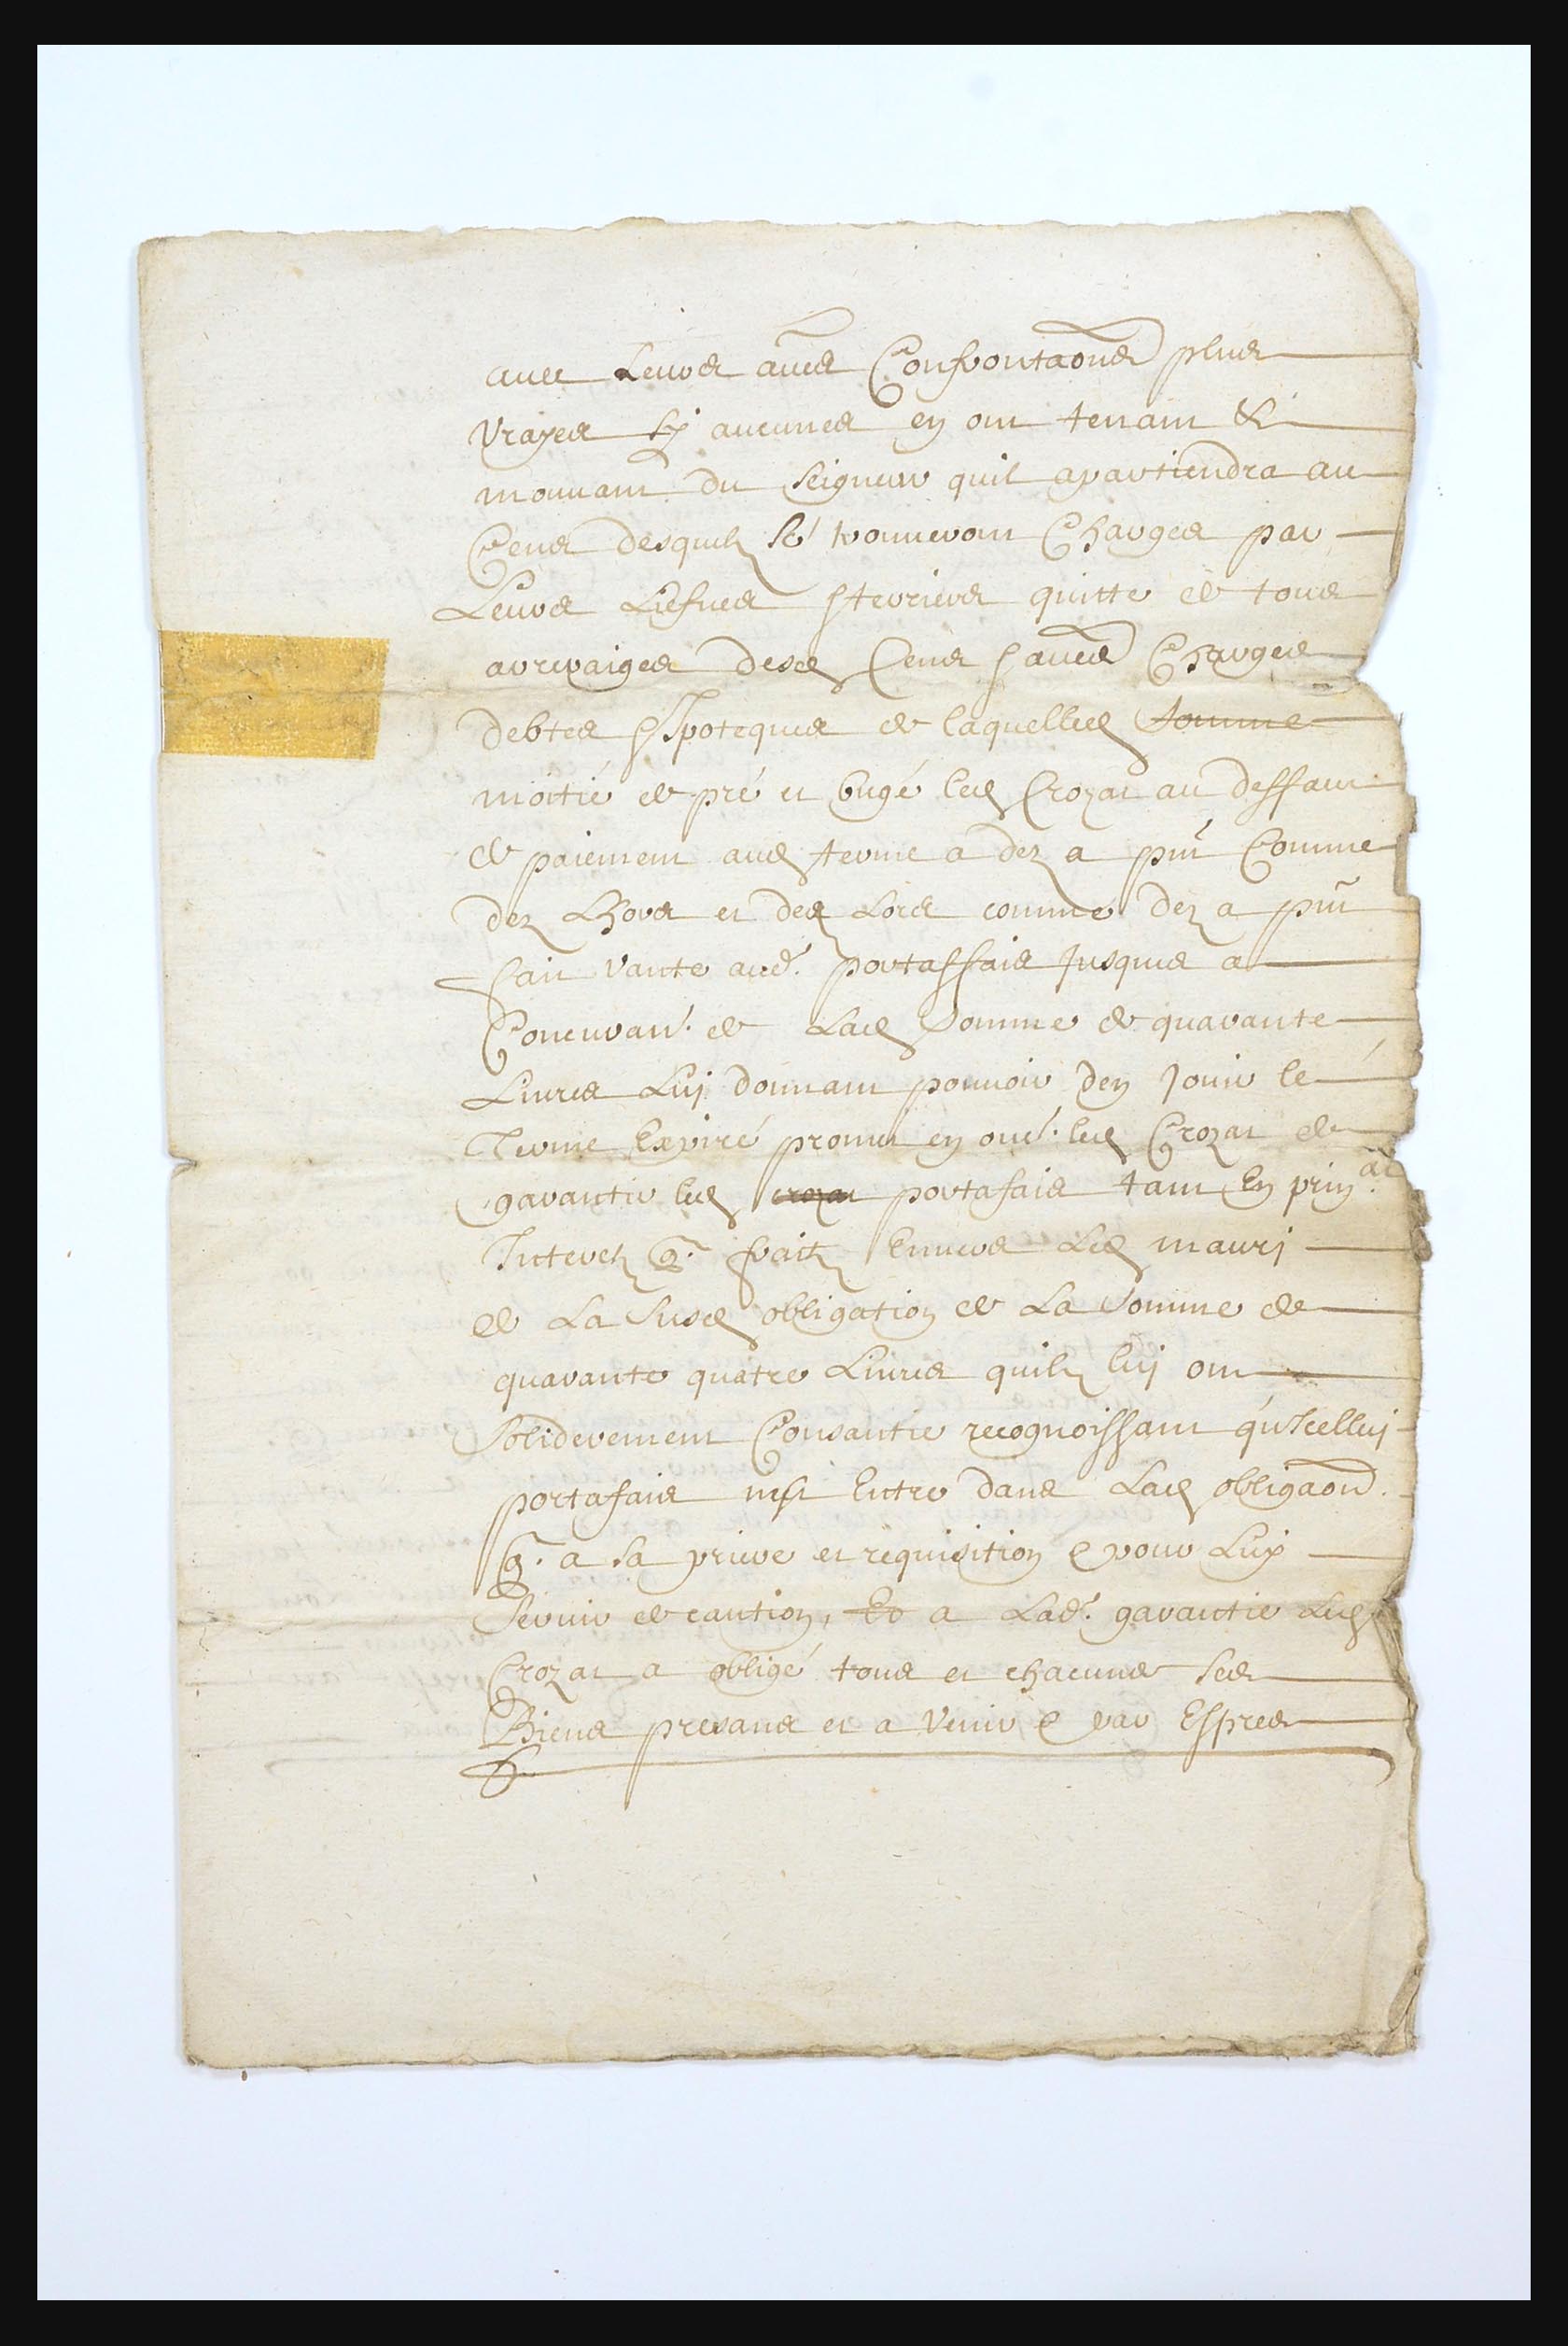 avec Leurs aües Confrontaõns plus
vrayes Sy aucunes en ont tenant &
mouuant du Seigneur quil apartiendra au
Cens desquelz Se trouueront Charges par
Leurs Liefues terriers quitte de tous
arreraiges desd Cens aües Charges
debtes hypoteques de laquelled Somme
moitié de pré et bugé led Crozat au deffaut
de paiement aud terme a dez a pnt Comme
dez Lhors et des Lors comme dez a pnt
fait vante aud. portaffais Jusques a
Concuran. de Lad Somme de quarante
Liures Luj donnant pouuoir den Jouir le
Terme Expiré promet en out. led Crozat de
garantir led crozat portafais tant En prin.al
Interetz q. fraitz Enuers Led mauri
de La Susd obligation de La Somme de
quarante quatre Liures quilz luj ont
Soliderement Consantie recognoissant qu'Icelluj
portafais nest Entre dans Lad obligaõn.
q. a sa priere et requisition e pour Luy
Seruir de caution, Et a Lad. garantie Led
Crozat a obligé tous et chacuns Ses
Biens presans et a Venir e par Expres